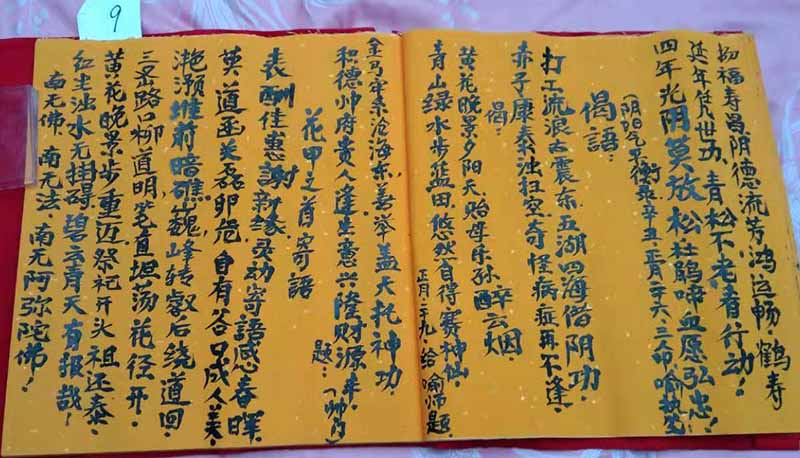 9
福寿昌阴德流芳鸿运畅.鹤寿
延年世功.青松不老看行动!
四年光阴莫放松.杜鹃啼血愿弘忠!
(阴阳气平衡辛丑.正月二十六.三命喻艺
偈語:
打工流浪去震东.五湖四海借阴功.
赤子康泰浊扫空.奇怪病症再不逢.
偈:
黄花晚景夕阳天.贻母乐孙醉云烟.
青山绿水步蓝田.悠然自得赛神仙.
正月二十九.给喻师题.
金马牢系沧海东.善举盖天托神功.
积德帅府贵人逢.生意兴隆财源丰.
题:
花甲之首寄語
表酬佳惠謝新缘.灵动寄語感春晖.
英道函关磊卵危.自有谷口成人美.
滟滪堆前暗礁.巍峰转后绕道回.
三岔路口柳道明.笔直坦荡花径开.
黄花晚景步重近.祭祀开头祖还泰.
红尘浊水无掛碍.碧云青天有报哉!
南无佛.南无法.南无阿弥陀佛!